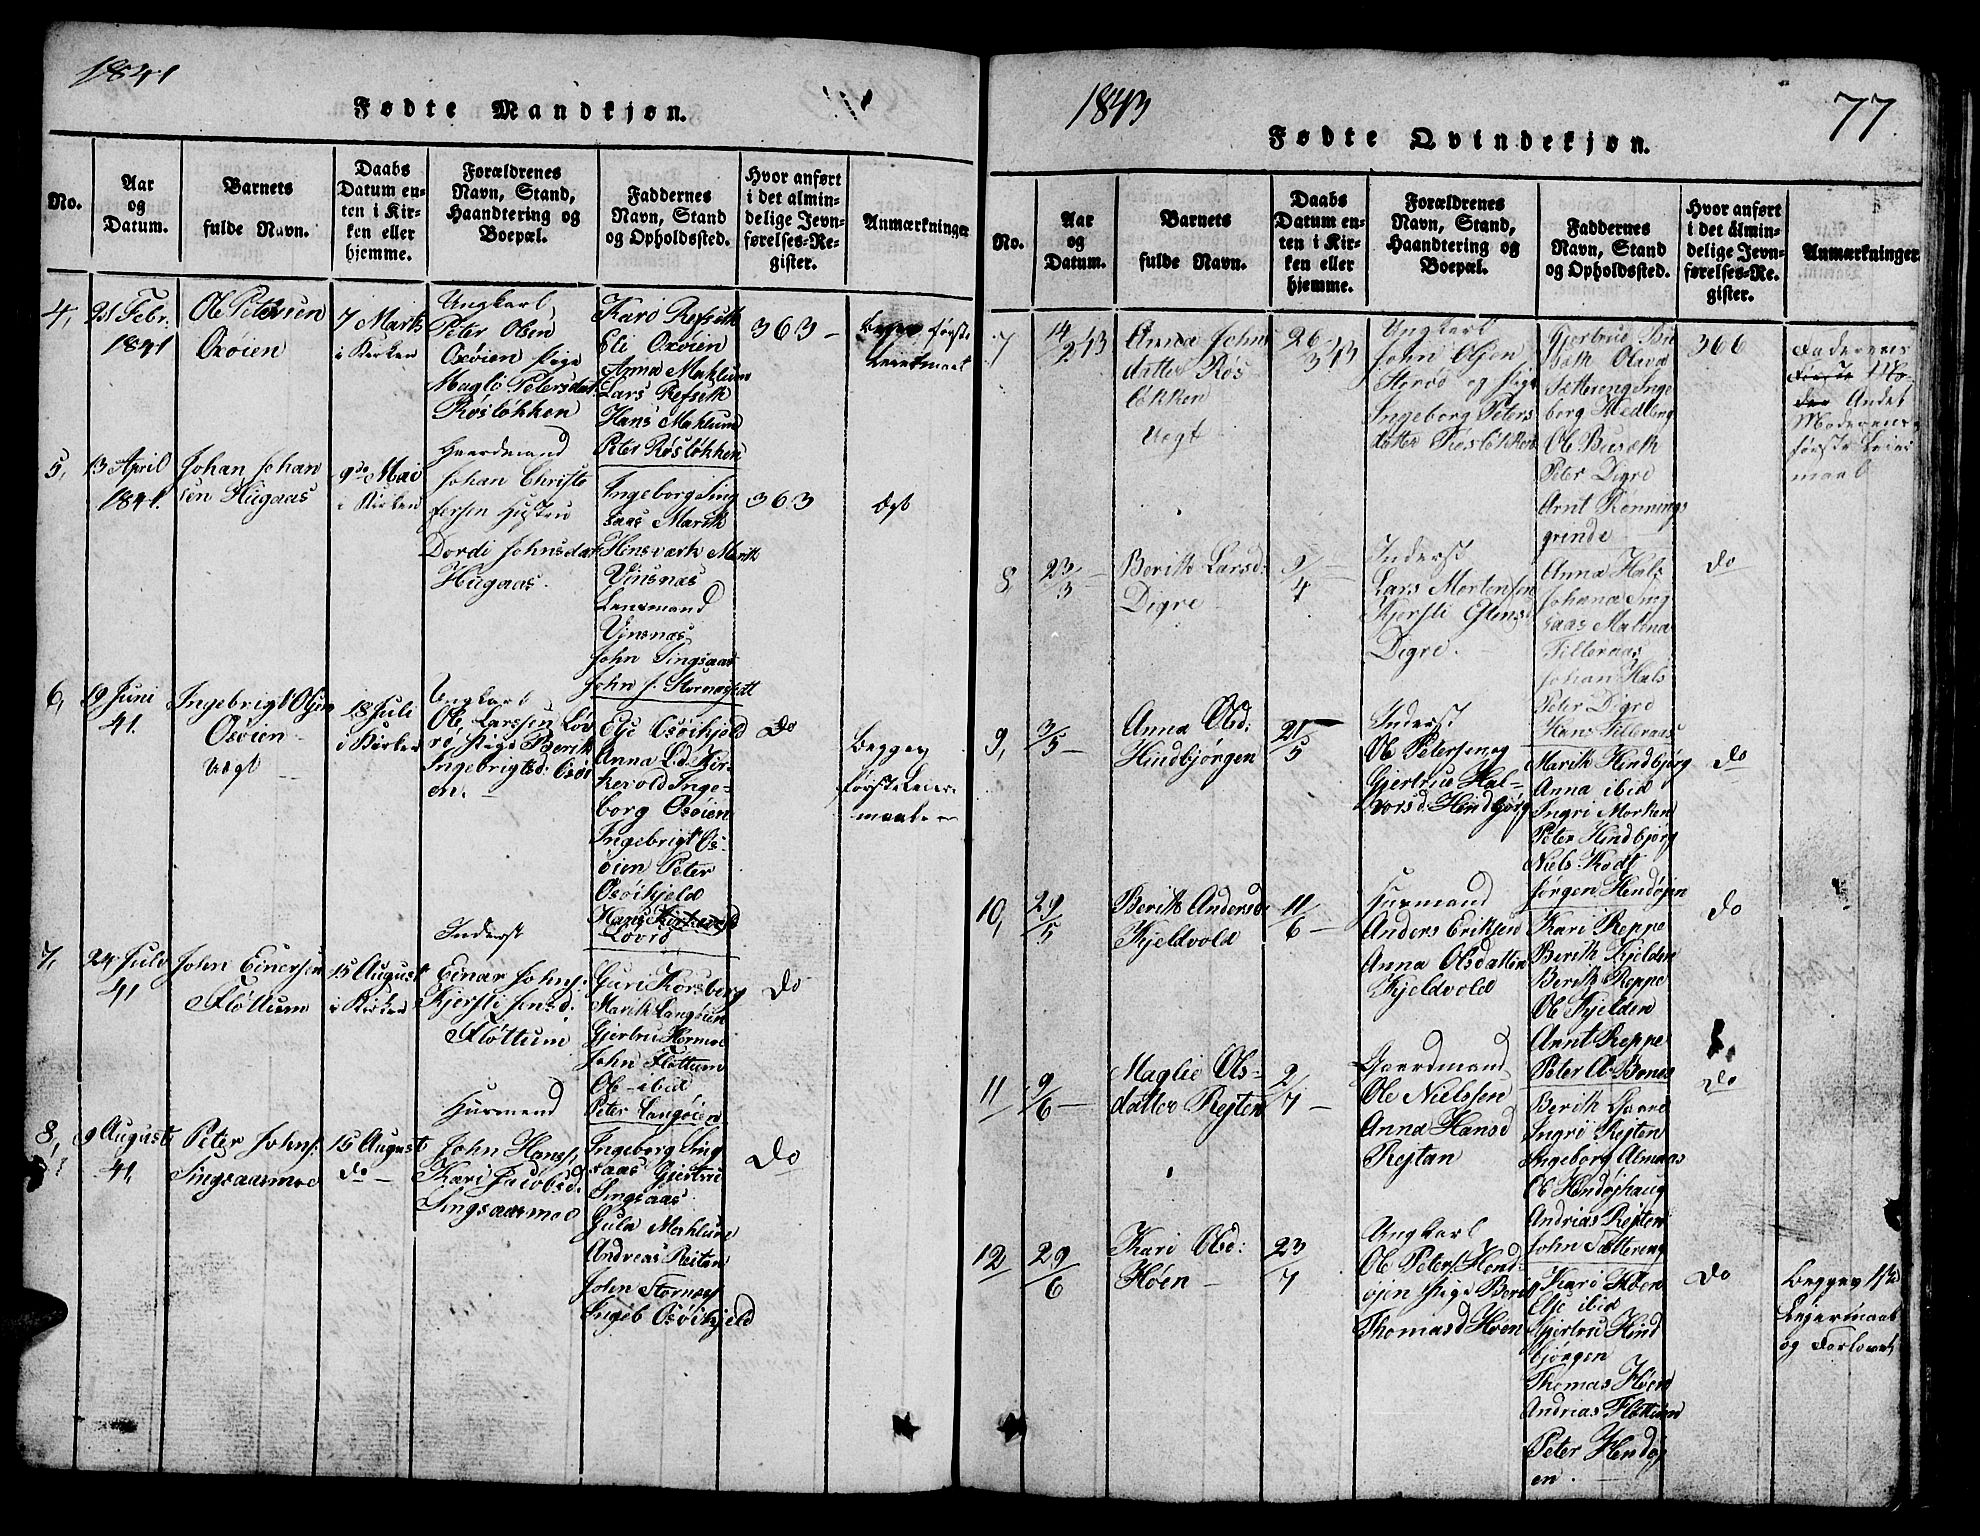 1841
Fødte Mandkjøn.
No.
Aar
og
Datum.
Barnets
fulde Navn.
Daabs
Datum en-
ten i Kir-
ken eller
hjemme.
Forældrenes
Navn, Stand,
Haandtering og
Boepæl.
Faddernes
Navn, Stand
og Opholdssted.
Hvor anført
i det almin-
delige Jevn-
førelses-Re-
gister.
Anmærkninger
4,
21 Febr.
1841
Ole Petersen
Oxøien
7 Marts
i Kirken
Ungkarl
Peter Olsen
Oxøien Pige
Maglo Petersdat
Røsløkken
Kari Refseth
Eli Oxøien
Anna Mæhlum
Lars Refseth
Hans Mæhlum
Peter Røsløkken
363 -
første
Leiermaal
5,
13 April
1841.
Johan Johan
sen Hugaas
9de Mai
i Kirken
Gaardmand
Johan Christo
fersen Hustru
Dordi Johnsdat
Hugaas.
Ingeborg Sing
saas Marith
Hinsværk Marith
Vinsnæs
Lensmand
Vinsnæs
John Singsaas
John J. Stornøstelt
363
Ægt
6,
19 Juni
41.
Ingebrigt Olsen
Osøien
Uægt
18 Juli
i Kirken
Ungkarl
Ole Larssen Løv
rø Pige Berith
Ingebrigtsd. Osøi
en.
Else Osøikjeld
Anna Ld. Kir-
kevold Inge-
borg Osøien
Ingebrigt Os-
øien Peter
Osøikjeld
Hans Kirkevold
Løvrø
Do
Begges
første Leier
maal
7,
24 Juli
41
John Einersen
Fløttum
15 August
i Kirken
Inderst
Einar Johns.
Kjersti Jensd.
Fløttum
Guri Korsberg
Marith Langøien
Gjertru Hormoe
John Fløttum
Ole ibid
Peter Langøien
Do
8,
9 August
41,
Peter Johns.
Singsaasmoe
15 August
do
Huusmand
John Hanss.
Kari Jacobsd.
Singsaasmoe
Ingeborg Sing
saas Gjertru
Singsaas
Gula Mæhlum
Andreas Reitan
John Stornæss
Ingeb Osøikjeld
Do
1843
77
Fødte Qvindekjøn.
No.
Aar
og
Datum.
Barnets
fulde Navn.
Daabs
Datum en-
ten i Kir-
ken eller
hjemme.
Forældrenes
Navn, Stand,
Haandtering og
Boepæl.
Faddernes
Navn, Stand
og Opholdssted.
Hvor anført
i det almin-
delige Jevn-
førelses-Re-
gister.
Anmærkninger
7
14/2 43
Anna Johns
datter Røs
løkken
Uægt
26/3 43
Ungkarl
John Olsen
Storrø og Pige
Ingeborg Peters
datter Røsløkken
Gjertrue Bu
seth Olava
Sættreng Inge
borg Medling
Ole Buseth
Peter Digre
Arnt Rønnings
grinde
366
Faderens
Andet
Moderens
første Leier
maal
8,
23/3
Berith Larsd:
Digre
9/4
Inderst
Lars Mortensen
Kjersti Estensd
Digre.
Anna Hals
Johana Sing
saas Malena
Tilleraas
Johan Hals
Peter Digre
Hans Tilleraas
do
9,
3/5
Anna Olsd:
Hindbjørgen
21/5
Inderst
Ole Petersen og
Gjertrue Hal-
vorsd. Hindbjørg
Marith Hindbjørg
Anna ibid
Ingri Morken
Peter Hindbjørg
Niels Kodt
Jørgen Hendøien
do
10,
29/5
Berith Andersd:
Kjeldvold
11/6
Huusmand
Anders Eriksen
Anna Olsdatter
Kjeldvold
Kari Reppe
Berith Kjelden
Berith Reppe
Ole Kjelden
Arnt Reppe
Peter A. Bones
do
11
9/6
Maglie Ols-
datter Rejten
2/7
Gaardmand
Ole Nielssen
Anna Hansd
Rejtan
Berith Gaare
Ingri Rejten
Ingeborg Almaas
Ole Hendøjhaug
Andrias Rejten
John Sættereng
do
12
29/6
Kari Olsd:
Høen
23/7
Ungkarl
Ole Peters. Hend-
øjen Pige Berit
Thomasd Høen
Kari Høen
Else ibid
Gjertru Hind
bjørgen
Thomas Høen
Andrias Fløttum
Peter Hendøj
en.
do
Begges 1ste
Leiermaal
og Forlovet